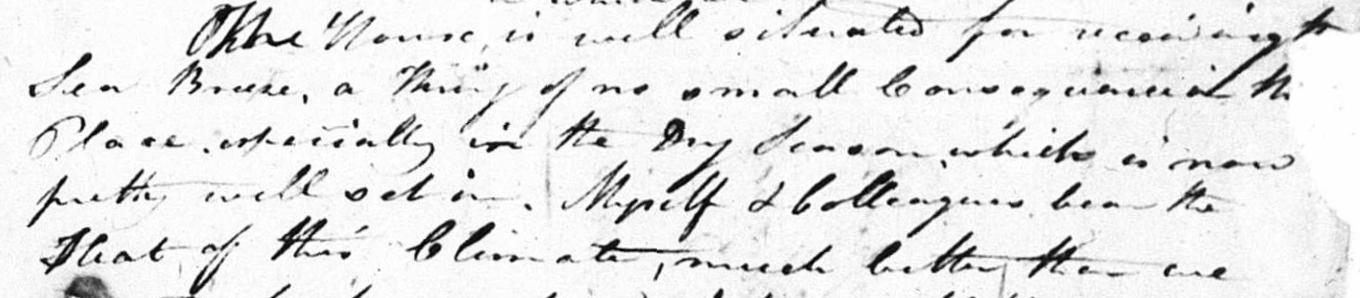 The House is well situated for receiving the
Sea Breeze, a Thing of no small Consequence in th
Place, especially in the Dry Season which is now
pretty well set in. Myself & Colleagues bear the
Heat of this Climate, much better than we